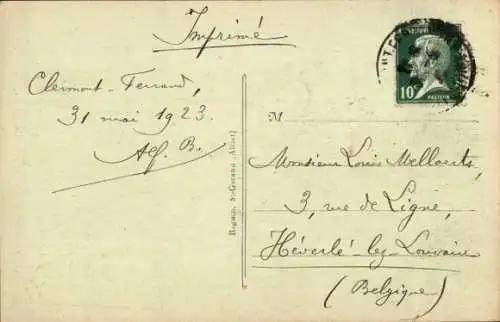 Imprimé
Clermont-Ferrand,
31 mai 1923.
Alf. B.
10
PASTEUR
M
Monsieur Louis Mellaerts,
3, rue de Ligne,
Héverlé-lez-Louvain
(Belgique)
St-Gerand (Allier)